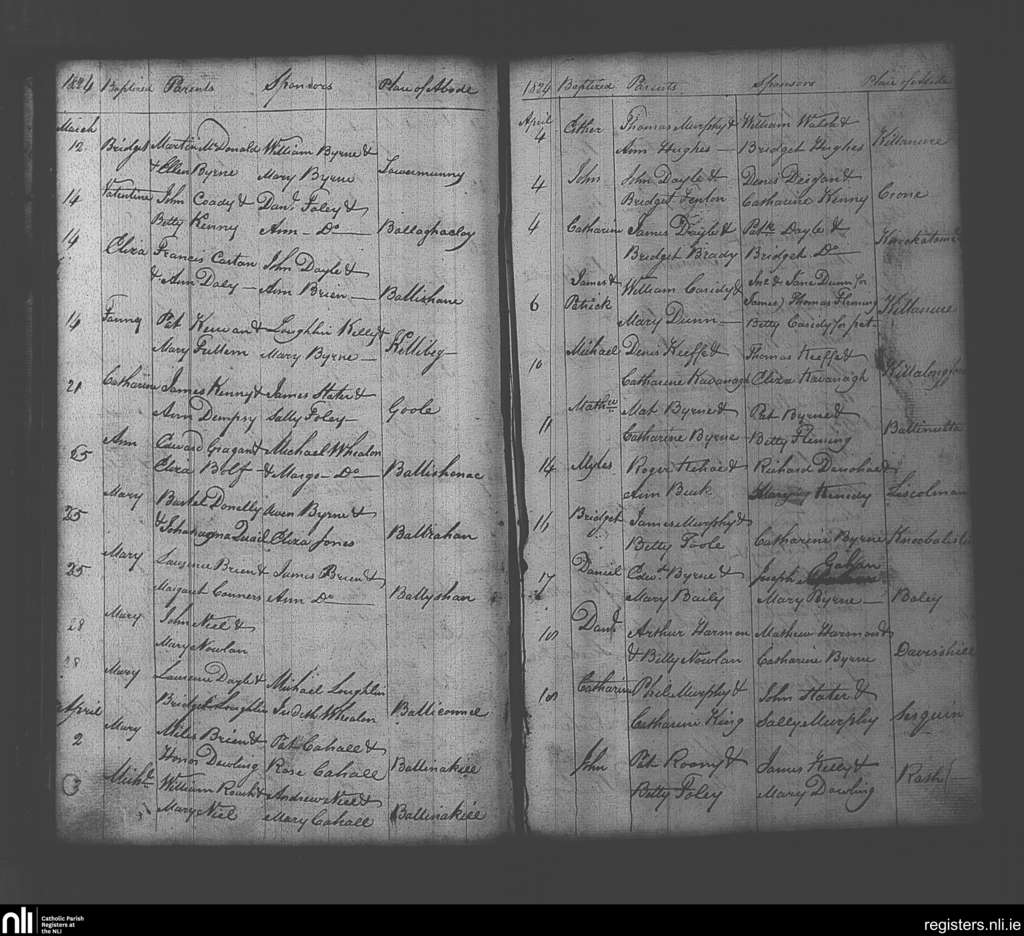 1824 Baptized Parents Sponsors Place of Abode
March
12 Bridget Martin McDonald William Byrne &
& Ellen Byrne Mary Byrne
14 Valentine John Coady & Danl Foley &
Betty Kenny Ann - Do - Ballaghaclay
14 Eliza Francis Costan John Doyle &
& Ann Daly - Ann Brien - Ballishane
14 Fanny Pat Kerwan & Loughlin Killy &
Mary Mary Byrne - Killibeg -
21 Catharine James Kenny & James Slater &
Ann Dempsy Sally Foley Goole
25 Ann Edward Gragan & Michael Whealon
Eliza Bolf - & Margt - Do - Ballishenac
25 Mary Bartel Donelly Owen Byrne &
& Quail Eliza Jones Ballrahan
25 Mary Laurence Brien & James Brien &
Margaret Conners Ann Do - Ballyshan
28 Mary John Niel &
Mary Nowlan
28 Mary Laurence Doyle & Michael Loughlin
Bridget Loughlin Judith Whealon Balliconnel
April
2 Mary Miles Brien & Pat Cahall &
Honor Dowling Rose Cahall Ballinakill
3 Michl William Roark & Andrew Niel &
Mary Niel Mary Cahall Ballinakill
1824 Baptized Parents Sponsors Place of Abode
April
4 Esther Thomas Murphy & William Walsh &
Ann Hughes - Bridget Hughes Killamure
4 John John Doyle & Denis Deegan &
Bridget Fenlon Catharine Kenny Crone
4 Catharine James Doyle & Patk Doyle &
Bridget Brady Bridget Do -
6 James & William Casidy & Jno & Jane Dunn for
Patrick James) Thomas Fleming Killamure
Mary Dunn - Betty Casidy for pat -
10 Michael Denis Keeffe & Thomas Keeffe &
Catharine Kavanagh Eliza Kavanagh
11 Mathw Mat Byrne & Pat Byrne &
Catharine Byrne Betty Fleming
14 Myles Roger Kehoe & Richard Donohoe &
Ann Buck Kenedy Liscolman
16 Bridget James Murphy &
Betty Toole Catharine Byrne
17 Daniel Edwd Byrne & Joseph Gahan
Mary Baily Mary Byrne - Boley
18 Danl Arthur Harmon Mathew Harmon &
& Billy Nowlan Catharine Byrne Davis'shill
18 Catharine Phil Murphy & John Slater &
Catharine King Sally Murphy
John Pat Roony & James Kelly &
Betty Foley Mary Dowling Rash
nli Catholic Parish
Registers at
the NLI
registers.nli.ie